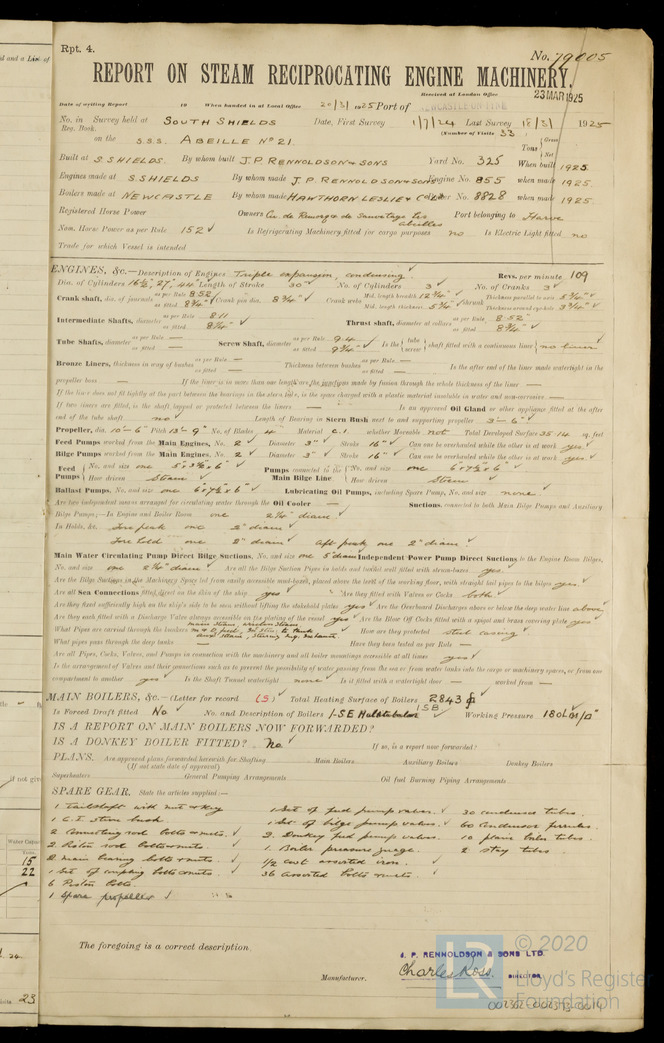 Rpt. 4.
No. 79005
REPORT ON STEAM RECIPROCATING ENGINE MACHINERY.
Received at London Office 23 MAR 1925
Date of writing Report 19 When handed in at Local Office 20/3/1925 Port of NEWCASTLE-ON-TYNE
No. in Reg. Book. Survey held at SOUTH SHIELDS Date, First Survey 1/7/24 Last Survey 18/3/ 1925
(Number of Visits 33
on the S.S.S. ABEILLE No 21. Tons { Gross Net
Built at S. SHIELDS By whom built J. P. RENNOLDSON & SONS Yard No. 325 When built 1925.
Engines made at S. SHIELDS By whom made J. P. RENNOLDSON & SONS Engine No. 855 when made 1925.
Boilers made at NEWCASTLE By whom made HAWTHORN LESLIE & Co Ld Boiler No. 8828 when made 1925.
Registered Horse Power Owners Cie. de Remorquage de Sauvetage Les Abeilles Port belonging to Havre
Nom. Horse Power as per Rule 152 Is Refrigerating Machinery fitted for cargo purposes no Is Electric Light fitted no
Trade for which Vessel is intended
ENGINES, &c.—Description of Engines Triple expansion, condensing. Revs. per minute 109
Dia. of Cylinders 16½", 27", 44" Length of Stroke 30" No. of Cylinders 3 No. of Cranks 3
Crank shaft, dia. of journals as per Rule 8.52 as fitted 8¾" Crank pin dia. 8¾" Crank webs Mid. length breadth Mid. length thickness 5¾" shrunk Thickness parallel to axis 5¾" Thickness around eye-hole
Intermediate Shafts, diameter as per Rule 8.11 as fitted 8¼" Thrust shaft, diameter at collars as per Rule 8.52 as fitted 8¾"
Tube Shafts, diameter as per Rule — as fitted — Screw Shaft, diameter as per Rule 9.4 as fitted 9¾" Is the { tube screw } shaft fitted with a continuous liner { no liner
Bronze Liners, thickness in way of bushes as per Rule — as fitted — Thickness between bushes as per Rule — as fitted — Is the after end of the liner made watertight in the
propeller boss — If the liner is in more than one length are the junctions made by fusion through the whole thickness of the liner —
If the liner does not fit tightly at the part between the bearings in the stern tube, is the space charged with a plastic material insoluble in water and non-corrosive —
If two liners are fitted, is the shaft lapped or protected between the liners — Is an approved Oil Gland or other appliance fitted at the after
end of the tube shaft no Length of Bearing in Stern Bush next to and supporting propeller 3'-6"
Propeller, dia. 10'-6" Pitch 13'-9" No. of Blades 4 Material C.I. whether Moveable not Total Developed Surface 35.14 sq. feet
Feed Pumps worked from the Main Engines, No. 2 Diameter 3" Stroke 16" Can one be overhauled while the other is at work yes
Bilge Pumps worked from the Main Engines, No. 2 Diameter 3" Stroke 16" Can one be overhauled while the other is at work yes
Feed Pumps { No. and size one 5"x3½"x6" How driven Steam Pumps connected to the Main Bilge Line { No. and size one 6"x7½"x6" How driven Steam
Ballast Pumps, No. and size one 6"x7½"x6" Lubricating Oil Pumps, including Spare Pump, No. and size none.
Are two independent means arranged for circulating water through the Oil Cooler — Suctions, connected to both Main Bilge Pumps and Auxiliary
Bilge Pumps;—In Engine and Boiler Room one 2¼" diam
In Holds, &c. Fore peak one 2" diam
Fore hold one 2" diam Aft peak one 2" diam
Main Water Circulating Pump Direct Bilge Suctions, No. and size one 5" diam Independent Power Pump Direct Suctions to the Engine Room Bilges,
No. and size one 2¾" diam Are all the Bilge Suction Pipes in holds and tunnel well fitted with strum-boxes yes
Are the Bilge Suctions in the Machinery Space led from easily accessible mud-boxes, placed above the level of the working floor, with straight tail pipes to the bilges yes
Are all Sea Connections fitted direct on the skin of the ship yes Are they fitted with Valves or Cocks both
Are they fixed sufficiently high on the ship's side to be seen without lifting the stokehold plates yes Are the Overboard Discharges above or below the deep water line above
Are they each fitted with a Discharge Valve always accessible on the plating of the vessel yes Are the Blow Off Cocks fitted with a spigot and brass covering plate yes
What Pipes are carried through the bunkers How are they protected steel casing
What pipes pass through the deep tanks — Have they been tested as per Rule —
Are all Pipes, Cocks, Valves, and Pumps in connection with the machinery and all boiler mountings accessible at all times yes
Is the arrangement of Valves and their connections such as to prevent the possibility of water passing from the sea or from water tanks into the cargo or machinery spaces, or from one
compartment to another yes Is the Shaft Tunnel watertight none Is it fitted with a watertight door — worked from —
MAIN BOILERS, &c.—(Letter for record (S) Total Heating Surface of Boilers 2843
Is Forced Draft fitted No No. and Description of Boilers 1-SE Multitubular 1SB Working Pressure 180 lbs/□"
IS A REPORT ON MAIN BOILERS NOW FORWARDED?
IS A DONKEY BOILER FITTED? No If so, is a report now forwarded?
PLANS. Are approved plans forwarded herewith for Shafting Main Boilers Auxiliary Boilers Donkey Boilers
(If not state date of approval)
Superheaters General Pumping Arrangements Oil fuel Burning Piping Arrangements
SPARE GEAR. State the articles supplied:—
1 Tailshaft with nut & key 1 Set of feed pump valves. 30 condenser tubes.
1 C.I. stern bush 1 Set of bilge pump valves. 60 condenser ferrules.
2 Connecting rod bolts & nuts. 2 Donkey feed pump valves 10 plain boiler tubes.
2 Piston rod bolts & nuts. 1 Boiler pressure guage. 2 stay tubes.
2 main bearing bolts & nuts. ½ cwt assorted iron.
1 Set of coupling bolts & nuts. 36 assorted bolts & nuts.
6 Piston bolts.
1 Spare propeller
The foregoing is a correct description.
J. P. RENNOLDSON & SONS LTD.
Charles Ross. DIRECTOR.
Manufacturer.
© 2020
Lloyd's Register
Foundation
LR
002362-002373-0014
d and a List of
if not giv
Water Capac
15
22
23